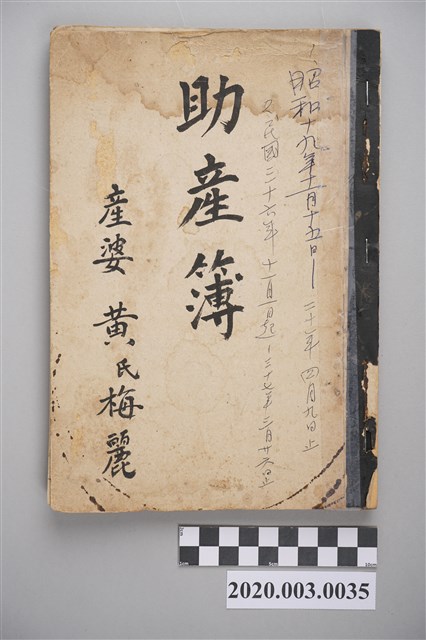 1.昭和十九年十一月十五日—二十一年四月九日止
2.民國三十六年十一月一日起—三十七年三月廿六日止
助產簿
產婆 黃氏梅麗
1cm 5cm 10cm
2020.003.0035